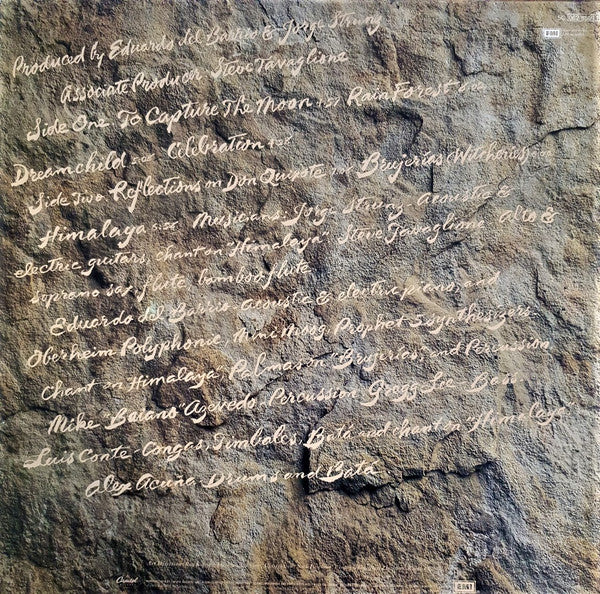 Produced by Eduardo del Barrio & Jorge Strunz
Associate Producer Steve Tavaglione
Side One To Capture The Moon Rain Forest
Dreamchild Celebration
Side Two Reflections on Don Quixote Brujerías (Witcheries)
Himalaya Musicians Jorge Strunz - Acoustic &
electric guitars, chant on "Himalaya" Steve Tavaglione Alto &
Soprano sax, flute, bamboo flute
Eduardo del Barrio - Acoustic & electric piano, and
Oberheim Polyphonic, Mini Moog, Prophet-5 synthesizers
Chant on "Himalaya", Palmas on "Brujerías", and Percussion
Mike "Baiano" Azevedo - Percussion Gregg Lee - Bass
Luis Conte - Congas, Timbales, Batá and chant on "Himalaya"
Alex Acuña, Drums and Batá
Capitol